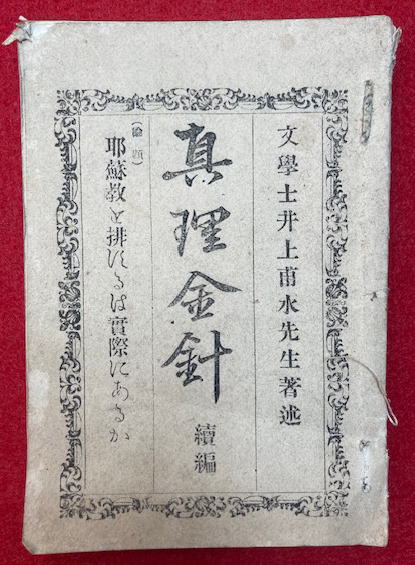 文學士井上甫水先生著述
真理金針
續編
(論題)
耶蘇教を排するは實際にあるか